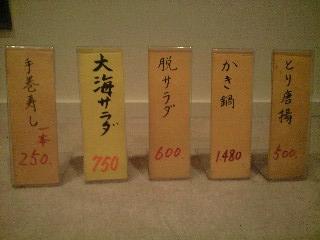 手巻寿し
一本
250.
大海サラダ
750
脱サラダ
600.
かき鍋
1.480
とり唐揚
500.